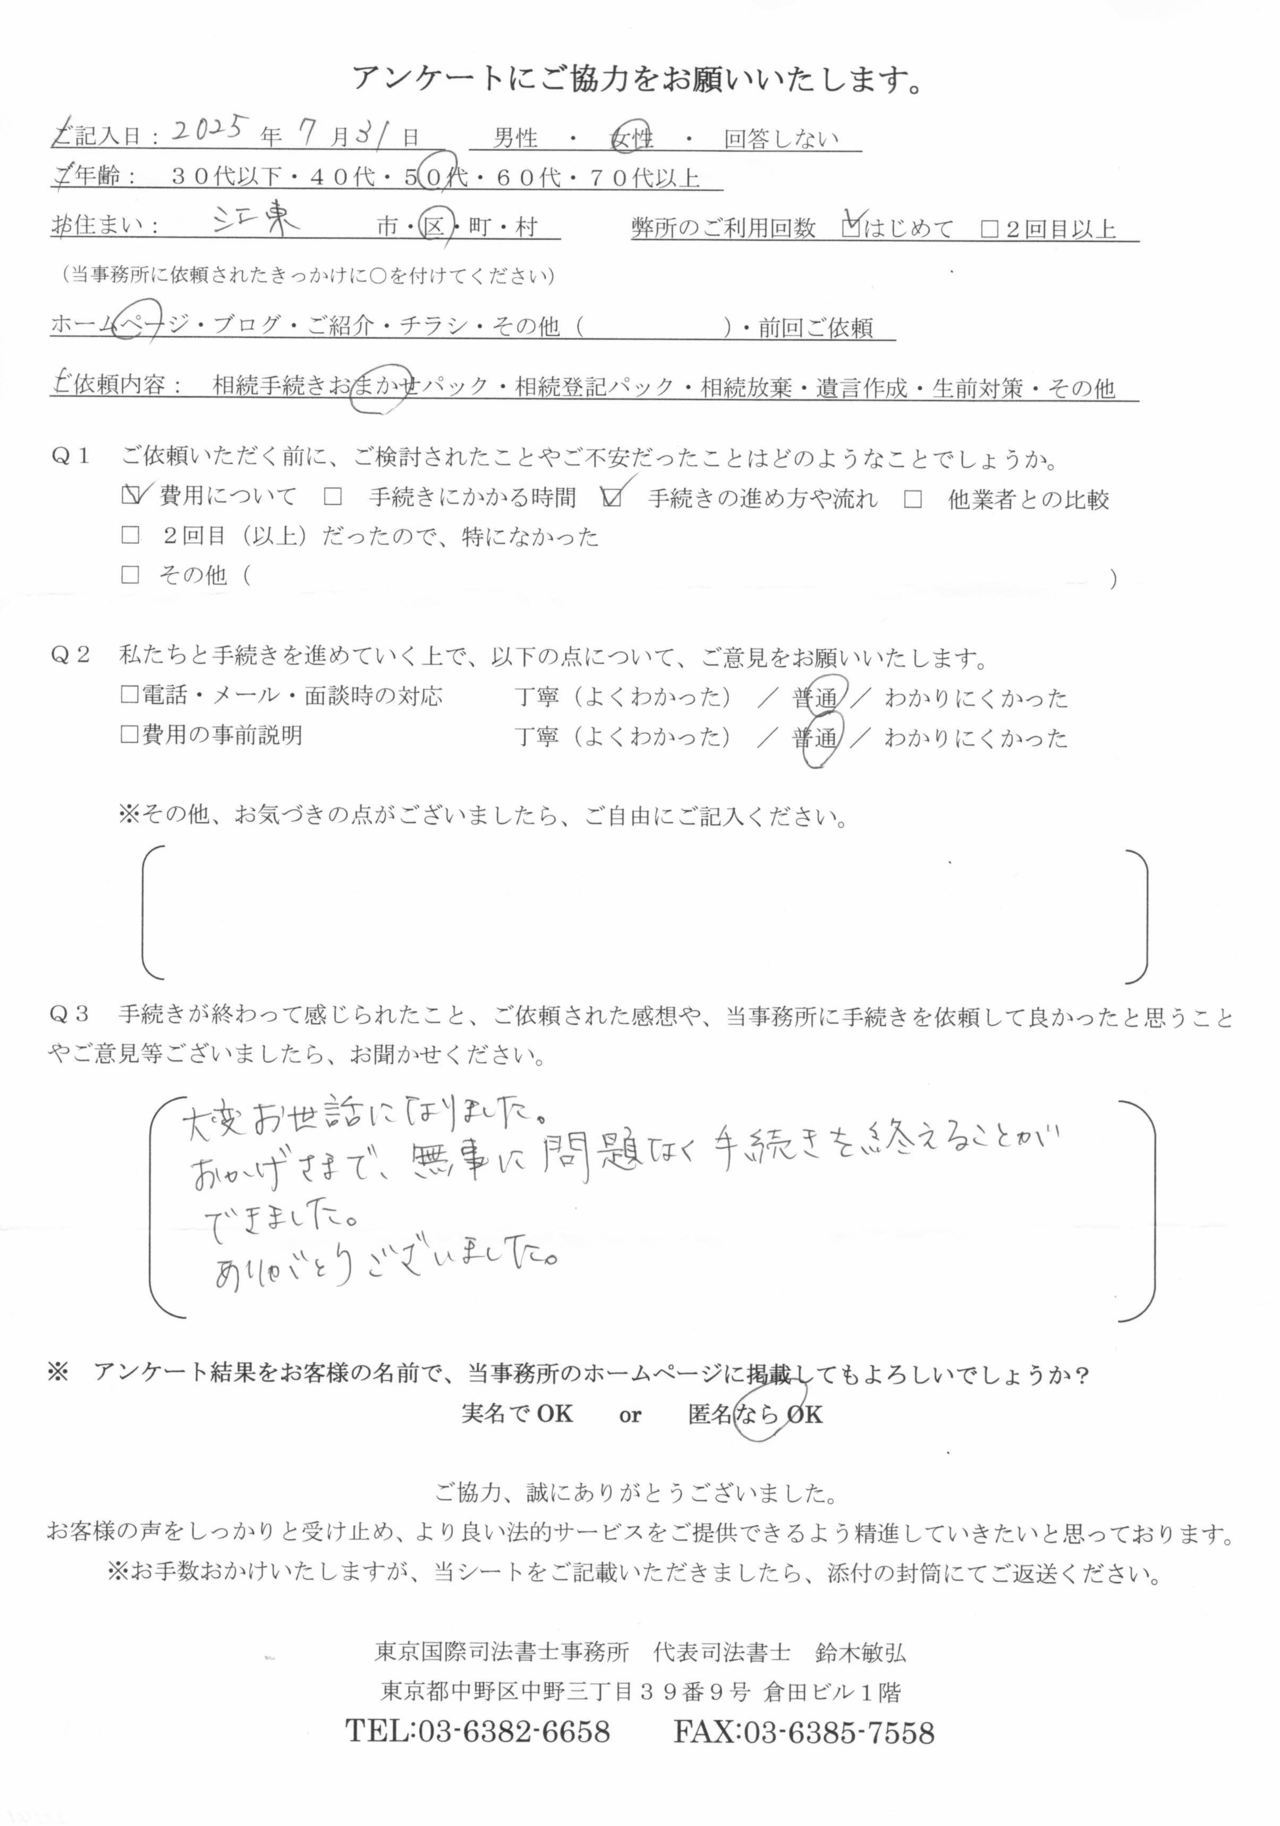 アンケートにご協力をお願いいたします。
ご記入日：2025年7月31日　男性　・　女性　・　回答しない
ご年齢：　３０代以下・４０代・５０代・６０代・７０代以上
お住まい：　江東　市・区・町・村　弊所のご利用回数　☑はじめて　□２回目以上
（当事務所に依頼されたきっかけに〇を付けてください）
ホームページ・ブログ・ご紹介・チラシ・その他（　　　　　　）・前回ご依頼
ご依頼内容：　相続手続きおまかせパック・相続登記パック・相続放棄・遺言作成・生前対策・その他
Ｑ１　ご依頼いただく前に、ご検討されたことやご不安だったことはどのようなことでしょうか。
☑ 費用について　□　手続きにかかる時間　☑　手続きの進め方や流れ　□　他業者との比較
□　２回目（以上）だったので、特になかった
□　その他（　　　　　　　　　　　　　　　　　　　　）
Ｑ２　私たちと手続きを進めていく上で、以下の点について、ご意見をお願いいたします。
□電話・メール・面談時の対応　　　丁寧（よくわかった）　／　普通　／　わかりにくかった
□費用の事前説明　　　丁寧（よくわかった）　／　普通　／　わかりにくかった
※その他、お気づきの点がございましたら、ご自由にご記入ください。
Ｑ３　手続きが終わって感じられたこと、ご依頼された感想や、当事務所に手続きを依頼して良かったと思うこと
やご意見等ございましたら、お聞かせください。
大変お世話になりました。
おかげさまで、無事に問題なく手続きを終えることが
できました。
ありがとうございました。
※　アンケート結果をお客様の名前で、当事務所のホームページに掲載してもよろしいでしょうか？
実名でOK　　or　　匿名ならOK
ご協力、誠にありがとうございました。
お客様の声をしっかりと受け止め、より良い法的サービスをご提供できるよう精進していきたいと思っております。
※お手数おかけいたしますが、当シートをご記載いただきましたら、添付の封筒にてご返送ください。
東京国際司法書士事務所　代表司法書士　鈴木敏弘
東京都中野区中野三丁目３９番９号 倉田ビル１階
TEL:03-6382-6658　　FAX:03-6385-7558